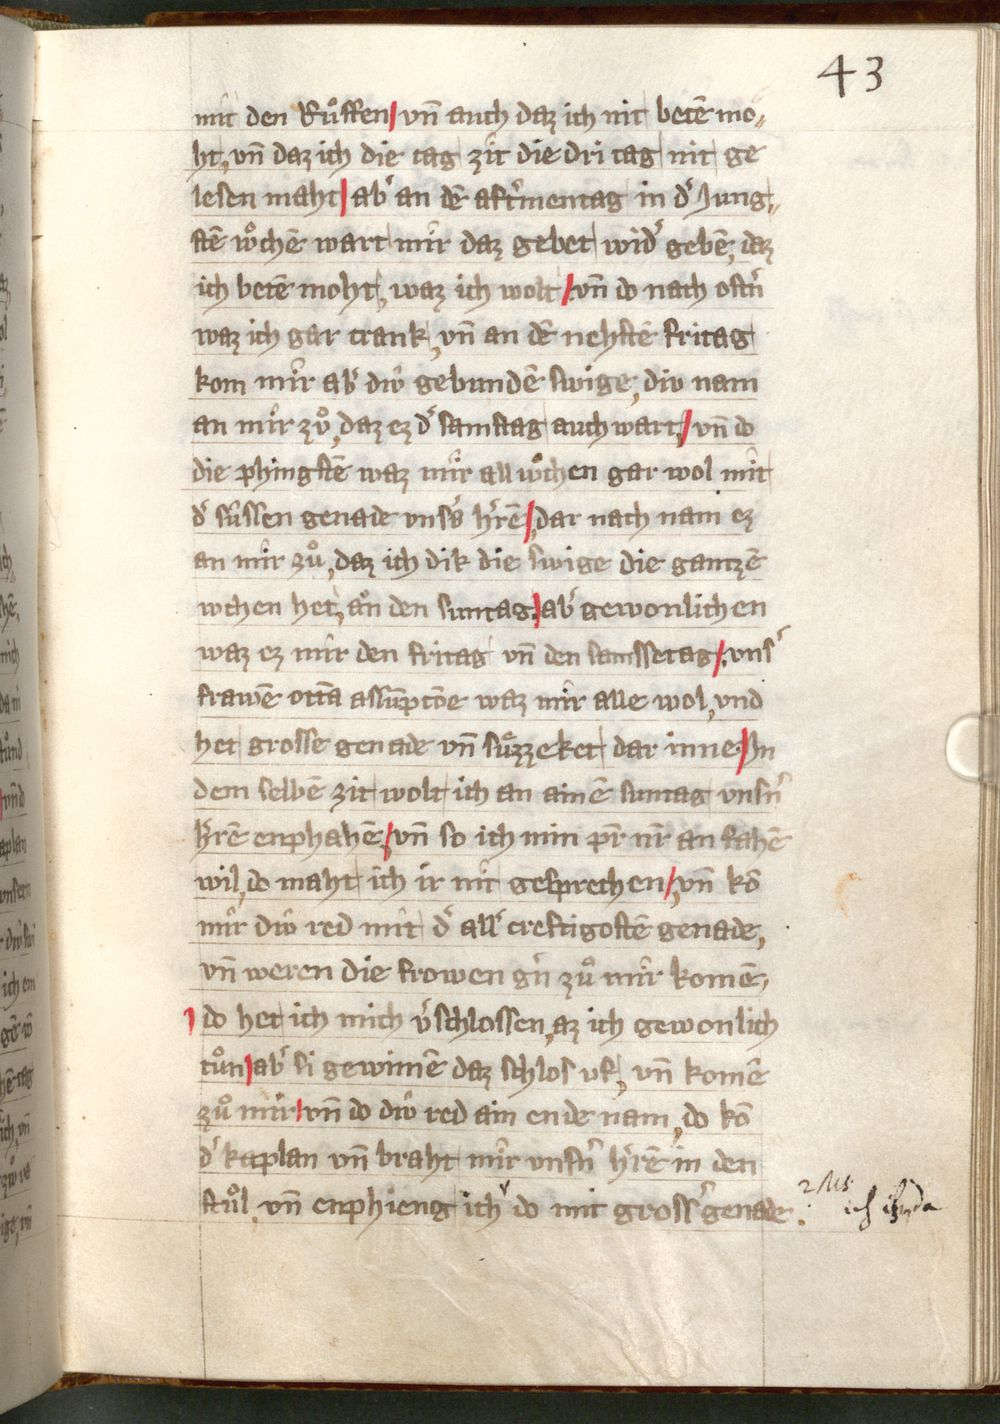 43
mit den Růffen / vn̄ auch daz ich nit betē mo„
ht, vn̄ daz ich die tag zit die dri tag nit ge
lesen maht / ab͛ an dē aft͛mentag in d͛ Jung„
stē wͦchē wart mir daz gebet wid͛ gebē, daz
ich betē moht, waz ich wolt / vn̄ do nach ost͛n
waz ich gar crank, vn̄ an dē nehstē fritag
kom mir ab͛ diͮ gebundē swige, diͮ nam
an mir zů, daz ez d͛ samstag auch wart, / vn̄ do
die phingstē waz mir all wͦchen gar wol mit
d͛ süssen genade vns͛s h͛rē / dar nach nam ez
an mir zů, daz ich dik die swige die gantzē
wchen het, an den suntag, / ab͛ gewonlichen
waz ez mir den fritag vn̄ den samssetag / vns͛
frawē ottā assūptōe waz mir alle wol, vnd
het grosse genade vn̄ sůzzeket dar inne / In
dem selbē zit wolt ich an ainē suntag vns͛n
h͛rē enphahē / vn̄ so ich min pr̄ nr̄ an fahē
wil, do maht ich ir nit gesprechen / vn̄ kō
mir diͮ red mit d͛ all͛ creftigostē genade,
vn̄ weren die frowen g͛n zů mir komē,
/ do het ich mich v͛schlossen, az ich gewonlich
tůn / ab͛ si gewinnē daz schlos vf, vn̄ komē
zů mir / vn̄ do diͮ red ain ende nam, do kō
d͛ kaplan vn̄ braht mir vns͛n h͛rē in den
stůl, vn̄ enphieng ich do mit gross͛ genade.